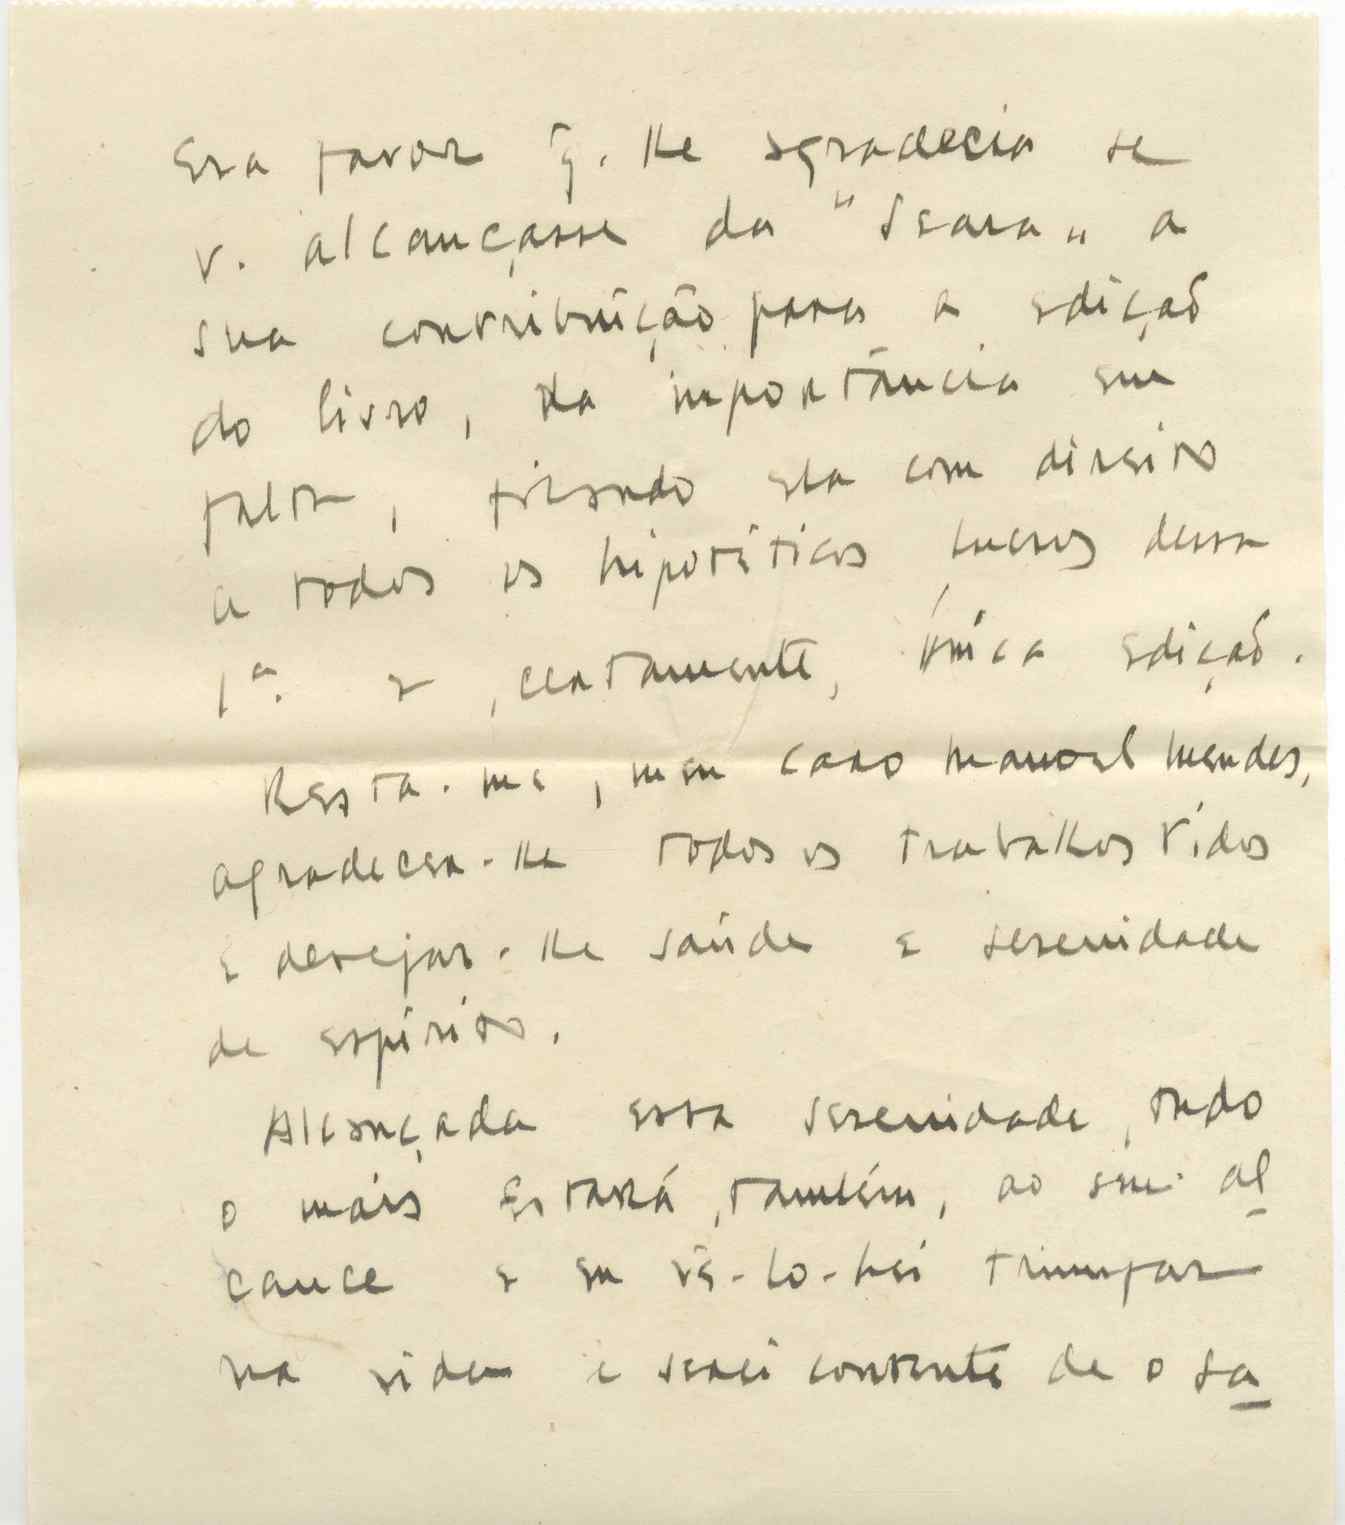 Era favor q̃. lhe agradecia se
v. alcançasse da "Seara" a
sua contribuição para a edição
do livro, na importância em
falta, ficando ela com direito
a todos os hipotéticos lucros dessa
1ª. e, certamente, única edição.
Resta-me, meu caro Manoel Mendes,
agradecer-lhe todos os trabalhos tidos
e desejar-lhe saúde e serenidade
de espírito.
Alcançada essa serenidade, tudo
o mais estará, também, ao seu al
cance e eu vê-lo-hei triumfar
na vida e serei contente de o sa